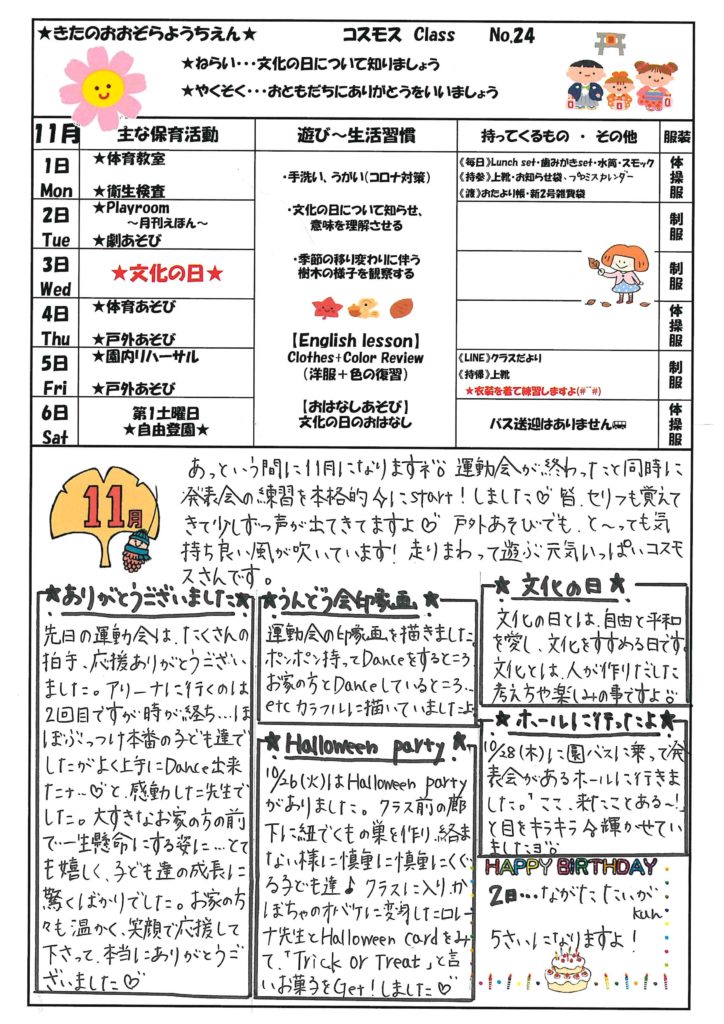 ★きたのおおぞらようちえん★ コスモス Class No.24
★ねらい・・・文化の日について知りましょう
★やくそく・・・おともだちにありがとうをいいましょう
11月 主な保育活動 遊び〜生活習慣 持ってくるもの ・ その他 服装
1日 Mon
★体育教室
★衛生検査
《毎日》Lunch set・歯みがきset・水筒・スモック
《持参》上靴・お知らせ袋、プロミスカレンダー
《渡》おたより帳・新2号雑貨袋
体操服
2日 Tue
★Playroom
〜月刊えほん〜
★劇あそび
制服
3日 Wed
★文化の日★
制服
4日 Thu
★体育あそび
★戸外あそび
体操服
5日 Fri
★園内リハーサル
★戸外あそび
《LINE》クラスだより
《持帰》上靴
★衣装を着て練習しますよ(#^^#)
制服
6日 Sat
第1土曜日
★自由登園★
バス送迎はありません
体操服
・手洗い、うがい(コロナ対策)
・文化の日について知らせ、
意味を理解させる
・季節の移り変わりに伴う
樹木の様子を観察する
【English lesson】
Clothes+Color Review
(洋服+色の復習)
【おはなしあそび】
文化の日のおはなし
11月
あっという間に11月になりますネ。運動会が終わったと同時に
発表会の練習を本格的にstart!しました♡ 皆、セリフも覚えて
きて少しずつ声が出てきてますよ♡ 戸外あそびでも、と〜っても気
持ち良い風が吹いています!走りまわって遊ぶ元気いっぱいコスモ
スさんです。
★ありがとうございました★
先日の運動会は、たくさんの
拍手、応援ありがとうござい
ました。アリーナに行くのは
2回目ですが時が経ち…ほ
ぼぶっつけ本番の子ども達で
したがよく上手にDance出来
たナ…♡と、感動した先生で
した。大すきなお家の方の前
で一生懸命にする姿に…とて
も嬉しく、子ども達の成長に
驚くばかりでした。お家の方
々も温かく、笑顔で応援して
下さって、本当にありがとうご
ざいました♡
★うんどう会印象画★
運動会の印象画を描きました。
ポンポン持ってDanceをするところ
お家の方とDanceしているところ…
etc カラフルに描いていましたよ
★Halloween party★
10/26(火)はHalloween party
がありました。クラス前の廊
下に紐でくもの巣を作り、絡ま
ない様に慎重に慎重にくぐ
る子ども達♪ クラスに入り、か
ぼちゃのオバケに変身したロレー
ナ先生とHalloween cardをみ
て、「Trick or Treat」と言
いお菓子をGet!しました♡
★文化の日★
文化の日とは、自由と平和
を愛し、文化をすすめる日です。
文化とは、人が作りだした
考えちや楽しみの事ですよ。
★ホールに行ったよ★
10/28(木)に園バスに乗って発
表会があるホールに行きま
した。「ここ、来たことある〜!」
と目をキラキラ輝かせてい
ましたヨ。
HAPPY BIRTHDAY
2日…ながた たいが
kun
5さいになりますよ!